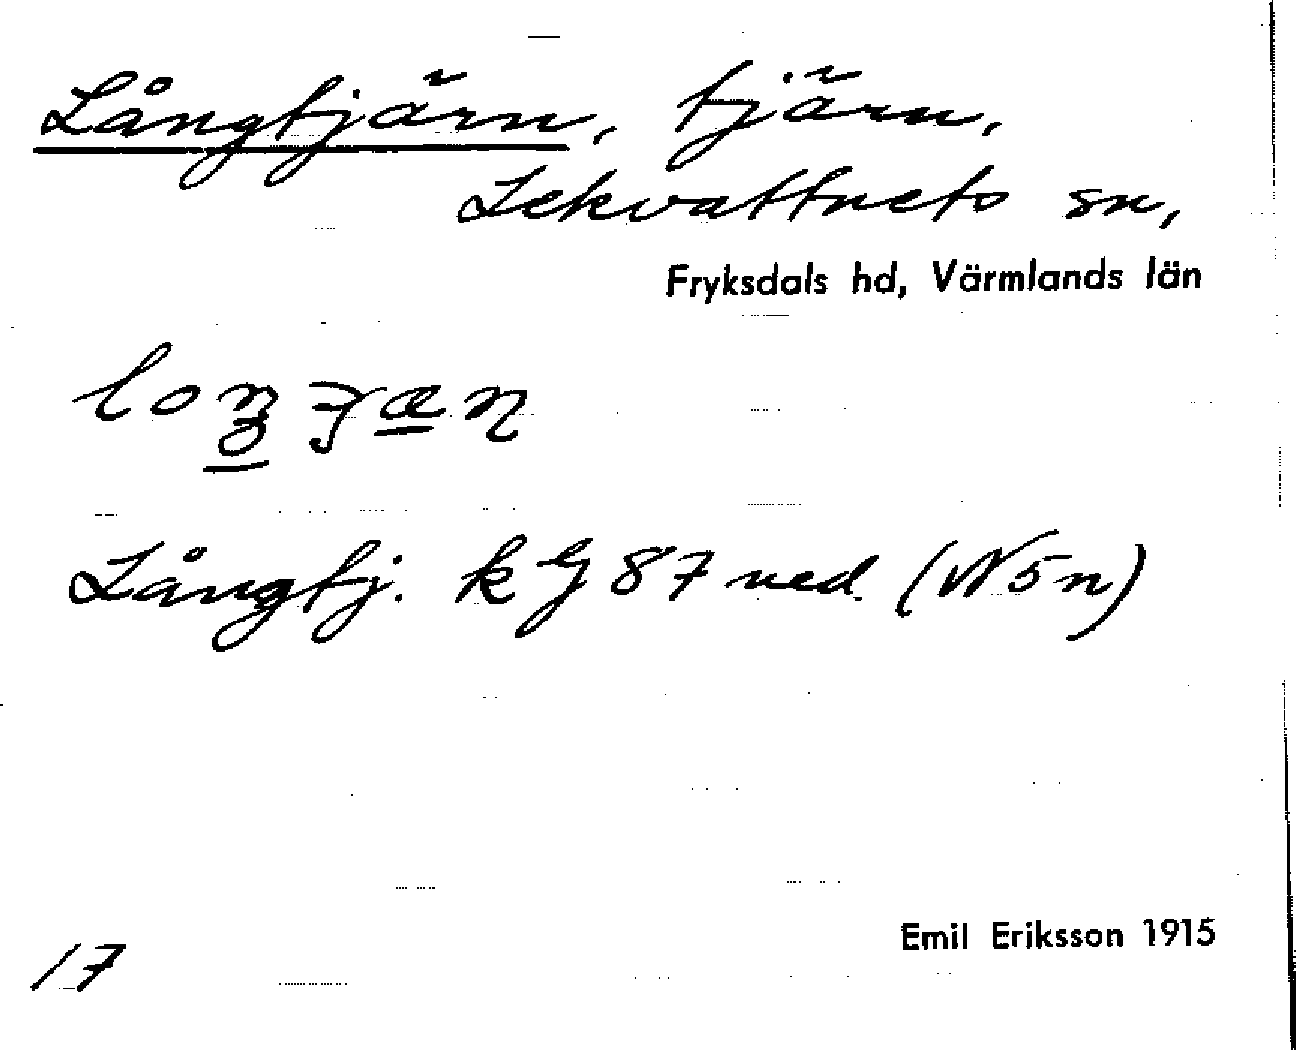 Långtjärn, tjärn,
Lekvattnets sn,
Fryksdals hd, Värmlands län
Långtj. k G 87 ned. (W5n)
17
Emil Eriksson 1915